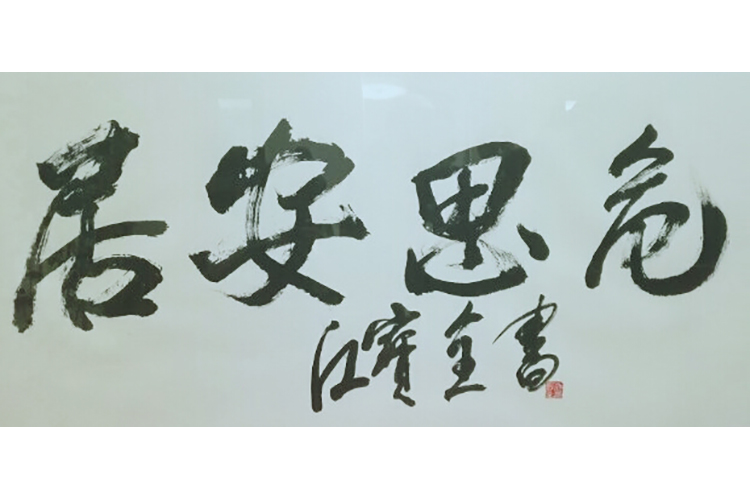 居安思危
江寶全書